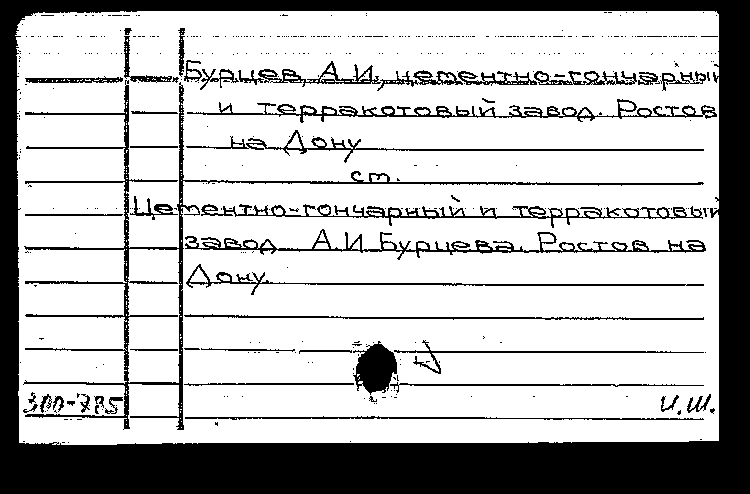 Бурцев, А.И., цементно-гончарный
и терракотовый завод. Ростов
на Дону
ст.
Цементно-гончарный и терракотовый
завод А.И. Бурцева. Ростов на
Дону.
300-785
И.Ш.